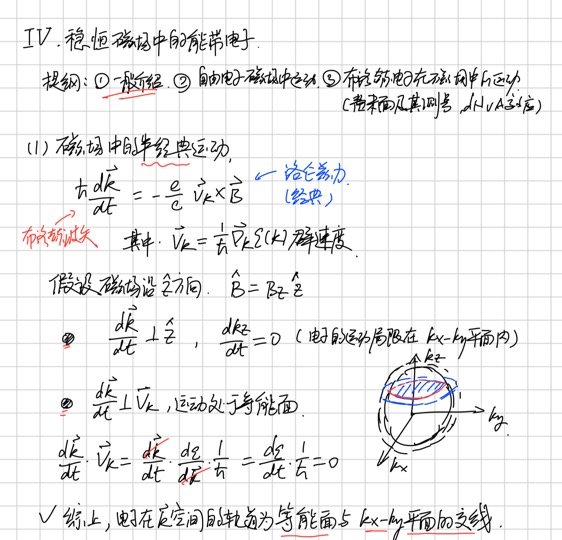 IV. 稳恒磁场中的能带电子.
提纲: ① 一般介绍. ② 自由电子磁场中运动. ③ 布洛赫电子在磁场中的运动
(费米面及其测量, dHvA效应)
(1) 磁场中的半经典运动.
ħ dk⃗/dt = - e/c v⃗ₖ × B⃗ ← 洛仑兹力. (经典)
布洛赫波矢
其中. v⃗ₖ = 1/ħ ∇⃗ₖ ε(k) 群速度.
假设磁场沿 ẑ 方向. B̂ = Bz ẑ
dk⃗/dt ⊥ ẑ , dkz/dt = 0 (电子的运动局限在 kx-ky平面内)
dk⃗/dt ⊥ v⃗ₖ , 运动处于等能面.
dk⃗/dt · v⃗ₖ = dk⃗/dt · dε/dk⃗ · 1/ħ = dε/dt · 1/ħ = 0
kz
ky
kx
✓ 综上, 电子在k空间的轨道为等能面与 kx-ky平面的交线.